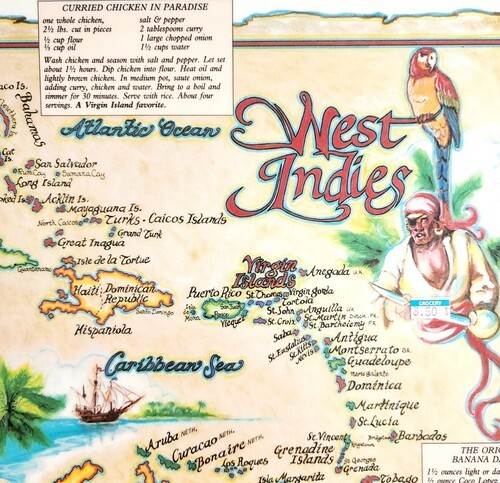 CURRIED CHICKEN IN PARADISE
one whole chicken,
2½ lbs. cut in pieces
½ cup flour
⅓ cup oil
salt & pepper
2 tablespoons curry
1 large chopped onion
1½ cups water
Wash chicken and season with salt and pepper. Let set
about 1½ hours. Dip chicken into flour. Heat oil and
lightly brown chicken. In medium pot, saute onion,
adding curry, chicken and water. Bring to a boil and
simmer for 30 minutes. Serve with rice. About four
servings. A Virgin Island favorite.
West
Indies
Atlantic Ocean
aco Is.
Bahamas
Cat
Is.
San Salvador
Rum Cay
Samana Cay
Long Island
oked Is.
Acklin Is.
Mayaguana Is.
North Caicos
Turks-Caicos Islands
Grand Turk
Great Inagua
Guantanamo
Isle de la Tortue
Haiti
Dominican
Republic
Santo Domingo
Hispaniola
Virgin
Islands
Anegada U.K.
Puerto Rico
St. Thomas
Virgin Gorda
Tortola
Isla
Mona
San Juan
Ponce
Vieques
St. John
St. Croix
Anguilla U.K.
St. Martin
St. Barthelemy FR.
Saba
St. Eustatius
St. Kitts
Nevis
GROCERY
3.50
Antigua
Montserrat
Guadeloupe
Marie Galante
Dominica
Caribbean Sea
Martinique
St. Lucia
St. Vincent
Bridgetown
Barbados
Grenadine
Islands
St. Georges
Grenada
Tobago
Aruba NETH.
Curacao NETH.
Bonaire NETH.
Los Roques
Isla Margarita
THE ORIG
BANANA DA
1½ ounces light or da